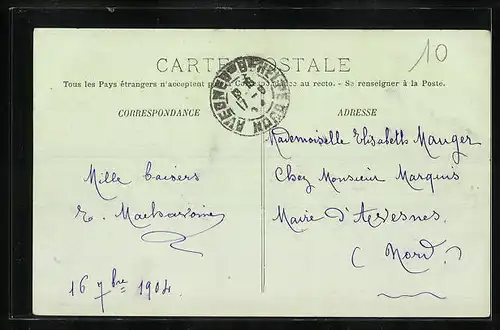 10
CARTE POSTALE
Tous les Pays étrangers n'acceptent pas la Correspondance au recto. — Se renseigner à la Poste.
CORRESPONDANCE
ADRESSE
Mille baisers
16 7bre 1904
Mademoiselle Elisabeth Mauger
Chez Monsieur Marquis
Maire d'Avesnes
(Nord)